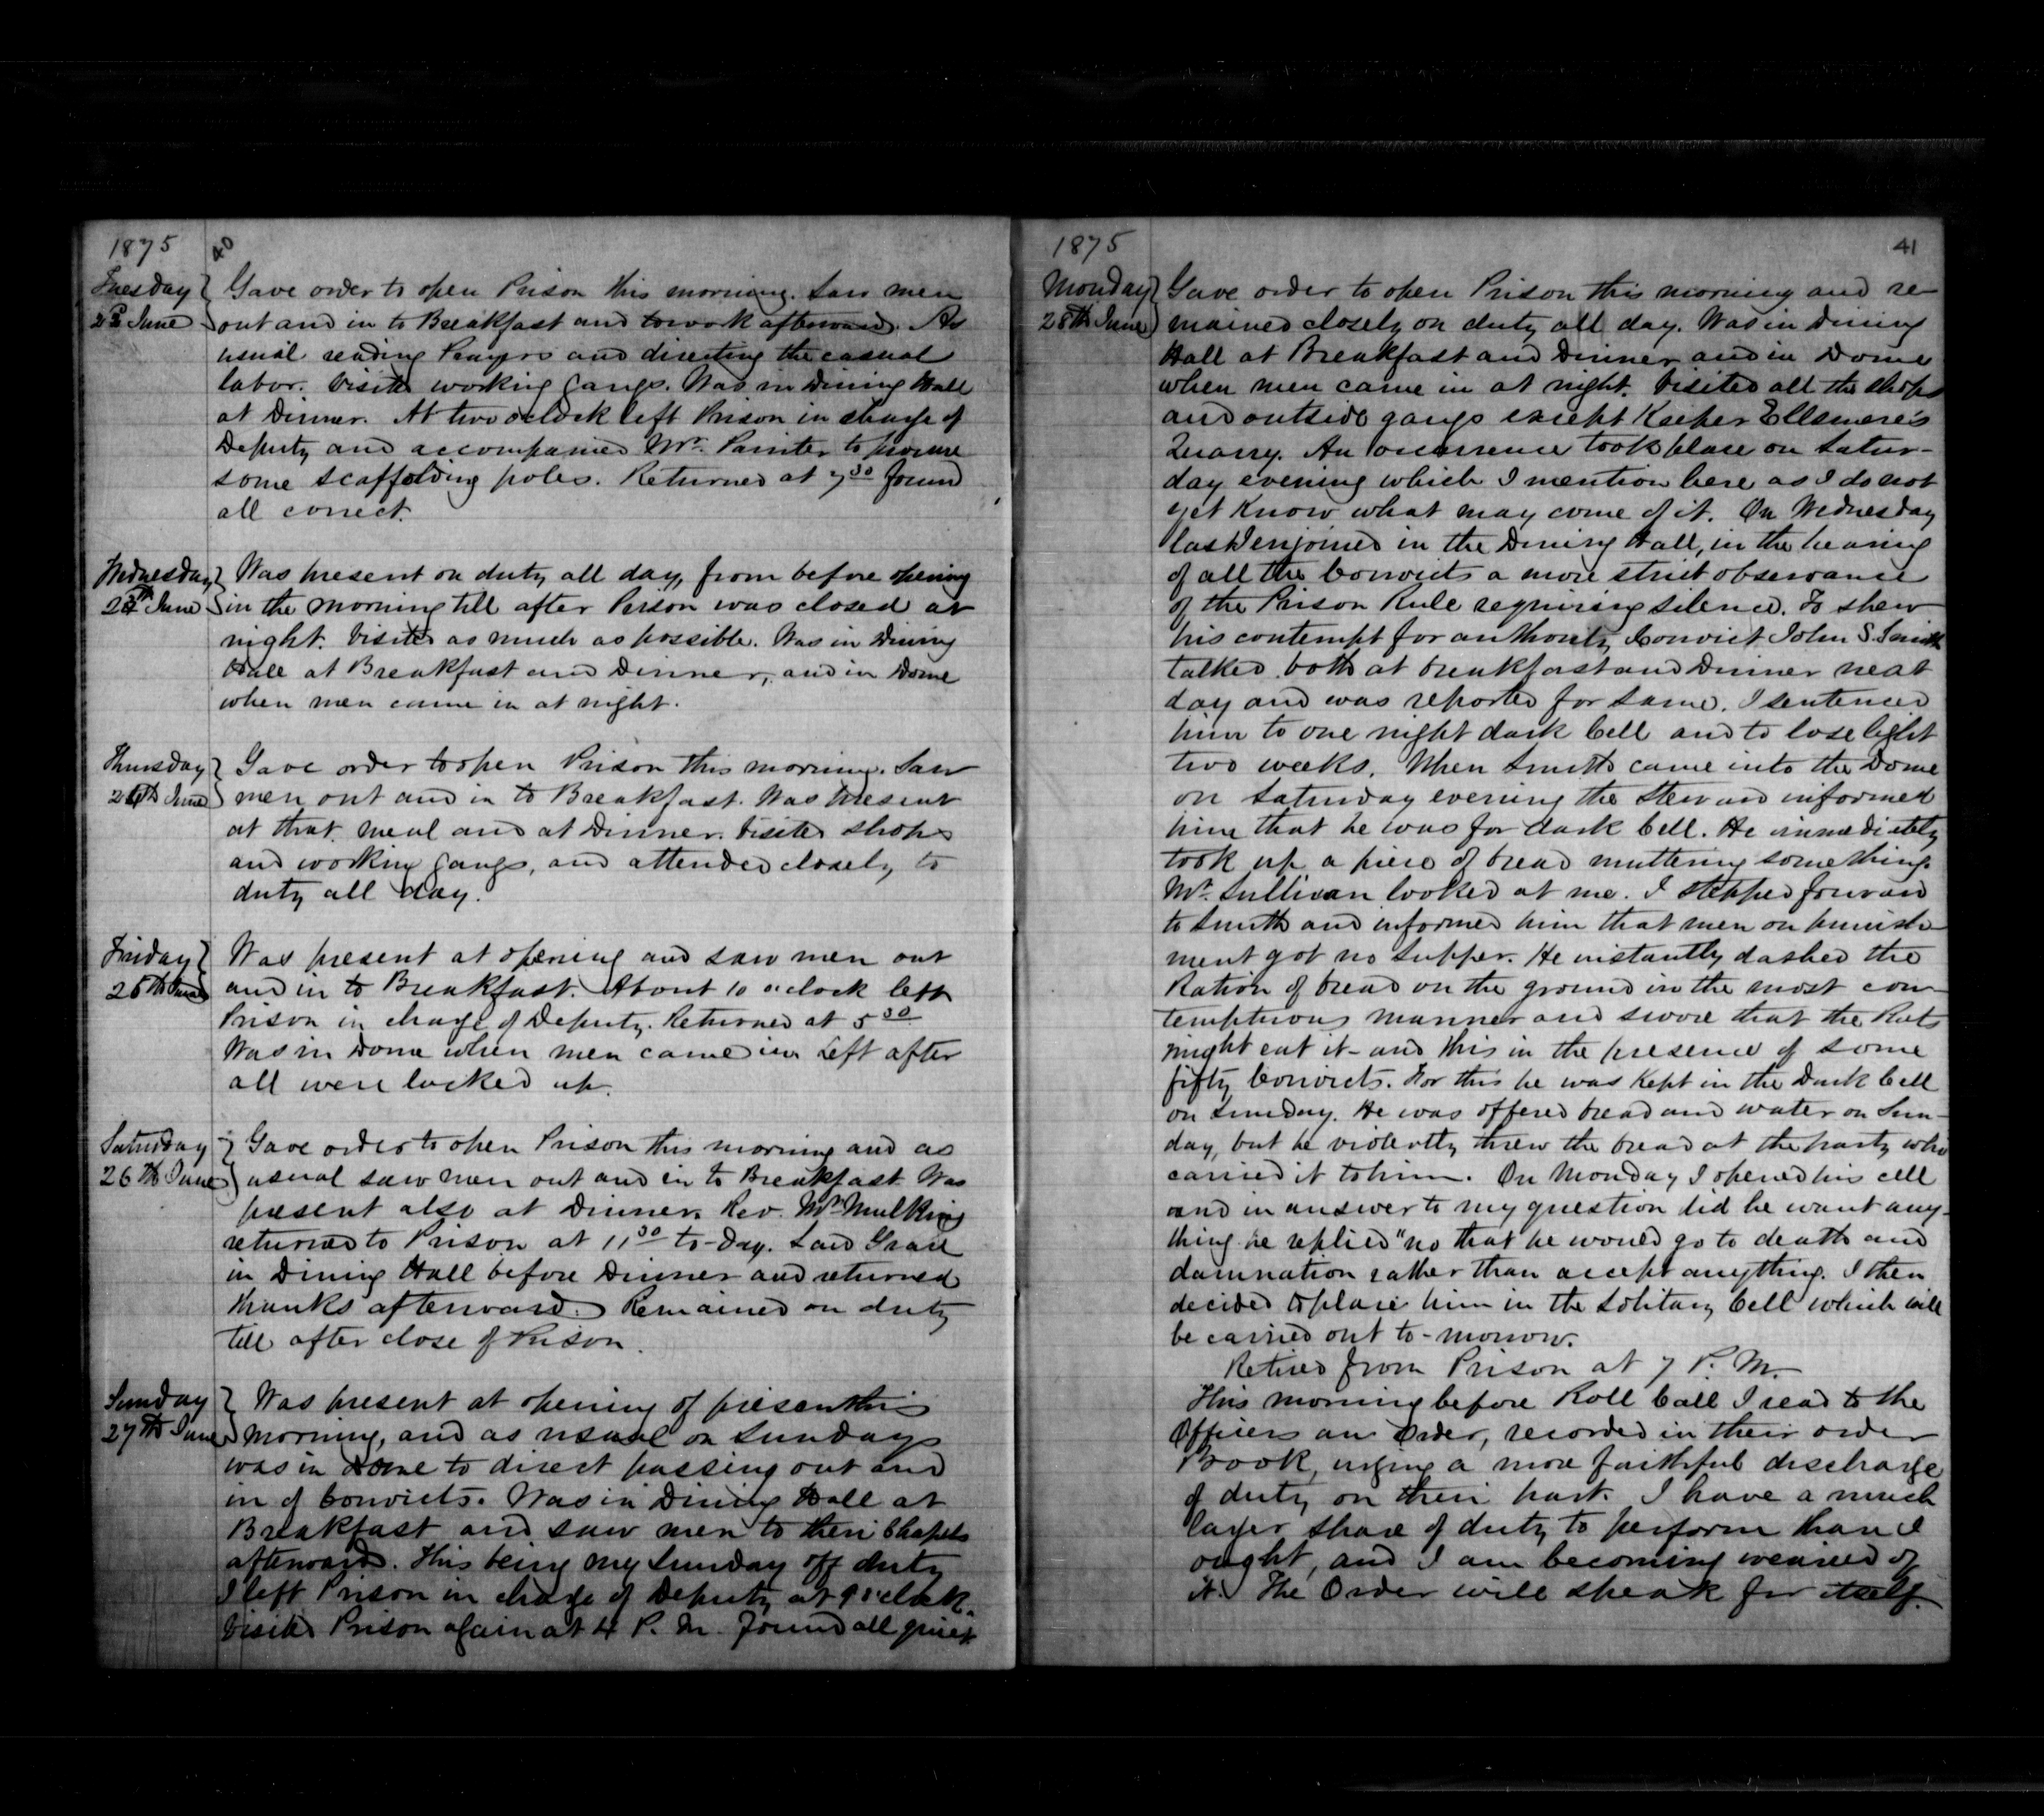 1875
40
Tuesday
22 June
Gave order to open Prison this morning. Saw men
out and in to Breakfast and to work afterward. As
usual reading Prayers and directing the casual
labor. Visited working Gangs. Was in Dining Hall
at Dinner. At two oclock left Prison in charge of
Deputy and accompanied Mr. Painter to procure
some scaffolding poles. Returned at 7 30 found
all correct.
Wednesday
June
Was present on duty all day, from before opening
in the morning till after Prison was closed at
night. Visited as much as possible. Was in Dining
Hall at Breakfast and Dinner, and in Dome
when men came in at night.
Thursday
June
Gave order to open Prison this morning. Saw
men out and in to Breakfast. Was present
at that meal and at Dinner. Visited shops
and working Gangs, and attended closely to
duty all day.
Friday
25th June
Was present at opening and saw men out
and in to Breakfast. About 10 oclock left
Prison in charge of Deputy. Returned at 5 30
Was in Dome when men came in. Left after
all were locked up.
Saturday
26th June
Gave order to open Prison this morning and as
usual saw men out and in to Breakfast. Was
present also at Dinner. Rev. Mr. Mulkins
returned to Prison at 11 30 to-day. Said Grace
in Dining Hall before Dinner and returned
thanks afterward. Remained on duty
till after close of Prison.
Sunday
27th June
Was present at opening of prison this
morning, and as usual on Sundays
was in Dome to direct passing out and
in of Convicts. Was in Dining Hall at
Breakfast and saw men to their Chapels
afterward. This being my Sunday off duty
I left Prison in charge of Deputy at 9 oclock.
Visited Prison again at 4 P. M. found all quiet
1875
41
Monday
28th June
Gave order to open Prison this morning and re-
mained closely on duty all day. Was in Dining
Hall at Breakfast and Dinner and in Dome
when men came in at night. Visited all the shops
and outside gangs except Keeper Ellsmere's
Quarry. An occurrence took place on Satur-
day evening which I mention here as I do not
yet know what may come of it. On Wednesday
last I enjoined in the Dining Hall, in the hearing
of all the Convicts a more strict observance
of the Prison Rule requiring silence. To shew
his contempt for authority Convict John S. Smith
talked both at breakfast and Dinner next
day and was reported for same. I sentenced
him to one night dark Cell and to lose light
two weeks. When Smith came into the Dome
on Saturday evening the Steward informed
him that he was for dark Cell. He immediately
took up a piece of bread muttering something.
Mr. Sullivan looked at me. I stepped forward
to Smith and informed him that men on punish-
ment got no supper. He instantly dashed the
Ration of bread on the ground in the most con-
temptuous manner and swore that the Rats
might eat it - and this in the presence of some
fifty Convicts. For this he was kept in the Dark Cell
on Sunday. He was offered bread and water on Sun-
day, but he violently threw the bread at the party who
carried it to him. On Monday I opened his cell
and in answer to my question did he want any-
thing he replied "no that he would go to death and
damnation rather than accept anything. I then
decided to place him in the Solitary Cell which will
be carried out to-morrow.
Retired from Prison at 7 P. M.
This morning before Roll Call I read to the
Officers an Order, recorded in their order
Book, urging a more faithful discharge
of duty on their part. I have a much
larger share of duty to perform than I
ought, and I am becoming wearied of
it. The Order will speak for itself.